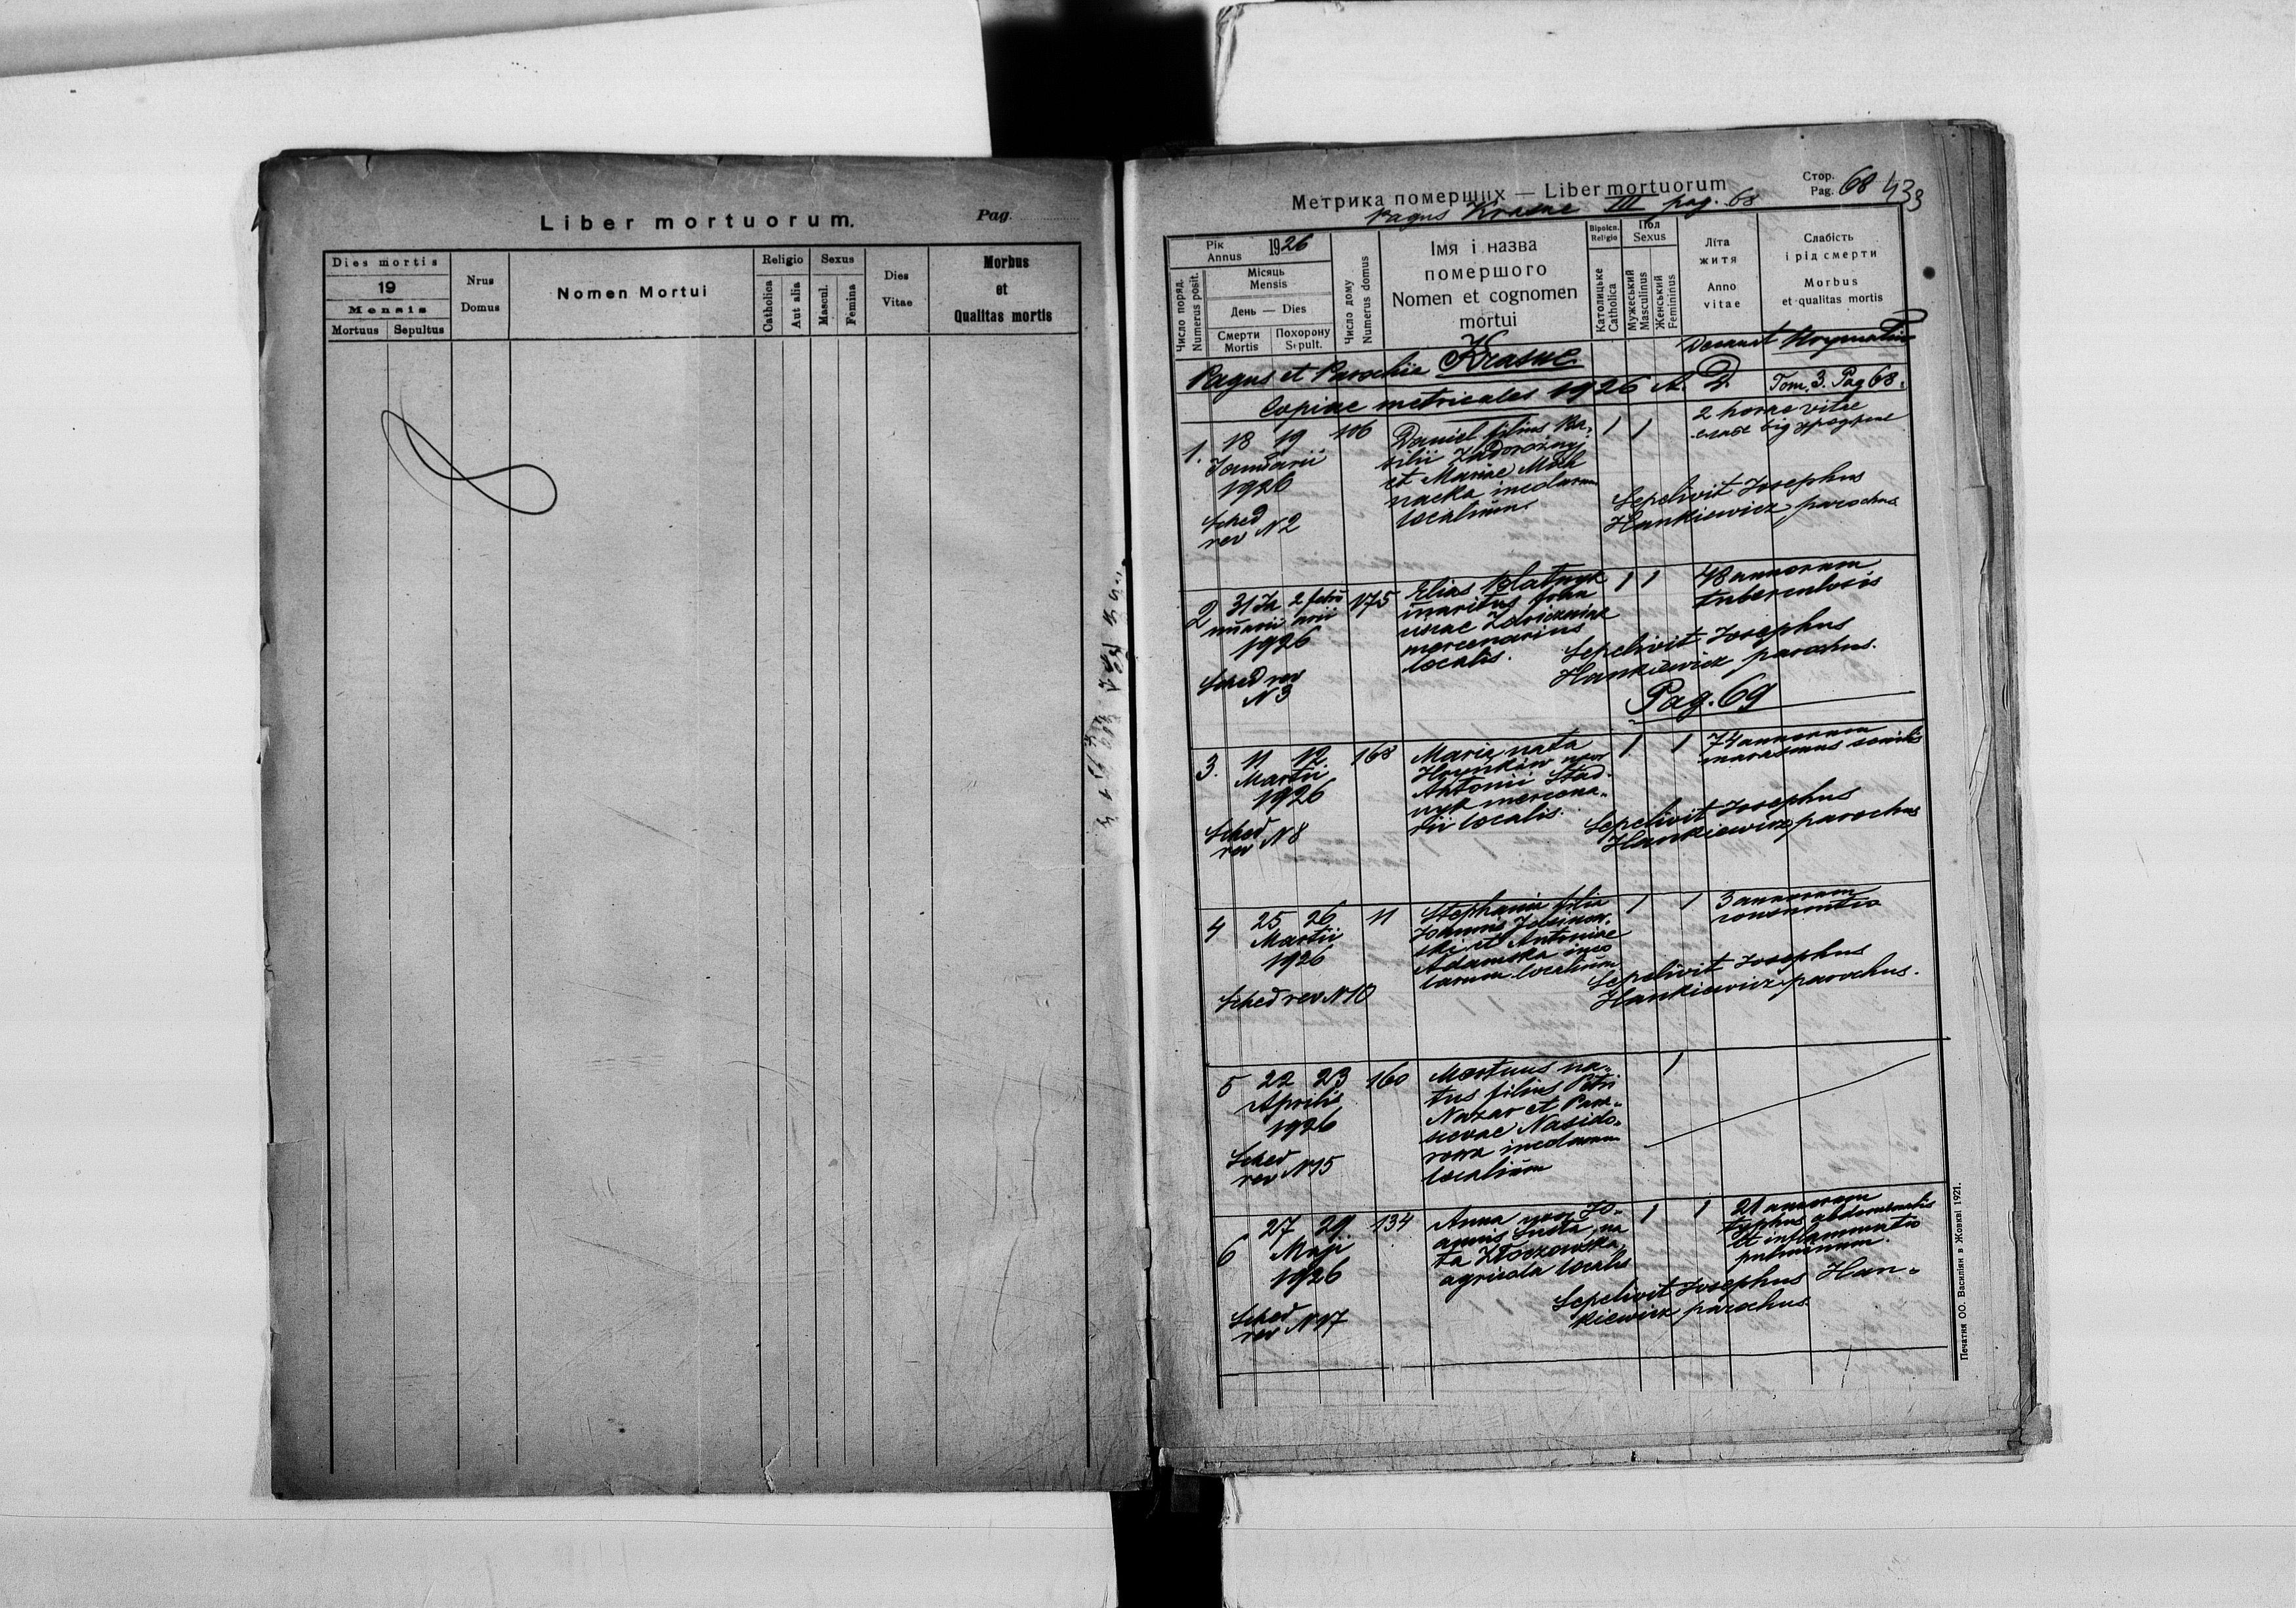 Liber mortuorum.
Pag.
Dies mortis
19
Mensis
Mortuus Sepultus
Nrus
Domus
Nomen Mortui
Religio
Catholica
Aut alia
Sexus
Mascul.
Femina
Dies
Vitae
Morbus
et
Qualitas mortis
Метрика померших — Liber mortuorum
Стор.
Pag. 68 433
Pagus Krasne III pag. 68
Число поряд.
Numerus posit.
Рік
Annus 1926
Місяць
Mensis
День — Dies
Смерти
Mortis
Похорону
Sepult.
Число дому
Numerus domus
Імя і назва
помершого
Nomen et cognomen
mortui
Віроісп.
Religio
Католицьке
Catholica
Пол
Sexus
Мужеський
Masculinus
Женський
Femininus
Літа
життя
Anno
vitae
Слабість
і рід смерти
Morbus
et qualitas mortis
Pagus et Parochia Krasne
Copiae metricales 1926 A. D. Tom. 3. Pag 68.
1. 18 19 106 Daniel filius Ba-
silii Zadorożnyj
et Mariae
incolarum
localium
1 1
2 horae vitae
Januarii
1926
Sched
rev N2
Sepelivit Josephus
Hankiewicz parochus
2 31 Ja 2 febru 175 Elias Płatnyk
nuarii arii maritus
1926
mercenarius
localis.
1 1
48 annorum
tuberculosis
Sched rev
N 3
Sepelivit Josephus
Hankiewicz parochus.
Pag. 69
3. 11 12 168 Maria nata
Hrynkiw uxor
Antonii Stad-
nyk mercena-
rii localis.
1 1
74 annorum
marasmus senilis
Martii
1926
Sched
rev N 8
Sepelivit Josephus
Hankiewicz parochus
4 25 26 11 Stephania filia
Joannis
ski et Antoniae
Adamska inco
larum localium
1 1
3 annorum
Martii
1926
Sched rev N 10
Sepelivit Josephus
Hankiewicz parochus.
5 22 23 160 Mortuus na-
tus filius Petri
Nazar et Para-
scevae Nasido-
rowa incolarum
localium
1
Aprilis
1926
Sched
rev N 15
6 27 29 134 Anna uxor Jo-
annis Susta, na
ta Złoczowska,
agricola localis
1 1
21 annorum
typhus abdominalis
et inflammatio
pulmonum.
Maji
1926
Sched
rev N 17
Sepelivit Josephus Han-
kiewicz parochus.
Печатня ОО. Василіян в Жовкві 1921.